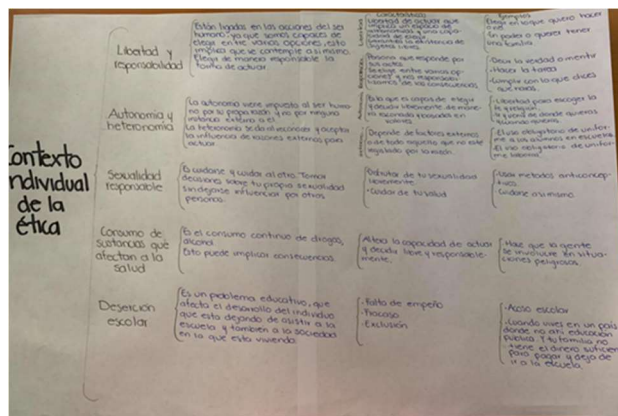 Contexto
individual
de la
ética
Libertad y
responsabilidad
Están ligadas en las acciones del ser
humano, ya que somos capaces de
elegir entre varias opciones, esto
implica que se contemple a si mismo.
Elegir de manera responsable la
forma de actuar
Características
Libertad de actuar que
implica un espacio de
Ejemplos
Elegir en lo que quiero hacer
En poder o querer tener
una familia.
Persona que responde por
sus actos
Se elige entre varias op-
ciones y nos responsabi-
lizamos de las consecuencias
Decir la verdad o mentir
Hacer la tarea
Cumplir con lo que dices
que harás.
Autonomía y
heteronomía
La autonomía viene impuesta al ser huma-
no por su propia razón y no por ninguna
instancia externa a él.
La heteronomía se da al reconocer y aceptar
la influencia de factores externos para
actuar
Es lo que es capaz de elegir
y decidir libremente de mane-
ra razonada apoyadas en
valores
Libertad para escoger la
religión
ir a donde quieras
Depende de factores externos
o de todo aquello que no esté
legislado por la razón.
El uso obligatorio de unifor-
me a los alumnos en escuelas
El uso obligatorio de unifor-
me laboral
Sexualidad
responsable
Es cuidarse y cuidar al otro. Tomar
decisiones sobre tu propia sexualidad
sin dejarse influenciar por otras
personas.
Disfrutar de tu sexualidad
libremente.
·Cuidar de tu salud
·Usar metodos anticoncep-
tivos
Cuidarse a si mismo.
Consumo de
sustancias que
afectan a la
salud
Es el consumo continuo de drogas,
alcohol
Esto puede implicar consecuencias.
Altera la capacidad de actuar
y decidir libre y responsable-
mente.
·Hace que la gente
se involucre en situa-
ciones peligrosas.
Deserción
escolar
Es un problema educativo, que
afecta el desarrollo del individuo
que esta dejando de asistir a la
escuela y tambien a la sociedad
en la que esta viviendo
·Falta de empeño
·Fracaso
·Exclusión
·Acoso escolar
·Cuando vives en un país
donde no ahi educación
publica. Y tu familia no
tiene el dinero suficien
para pagar y deja de
ir a la escuela.